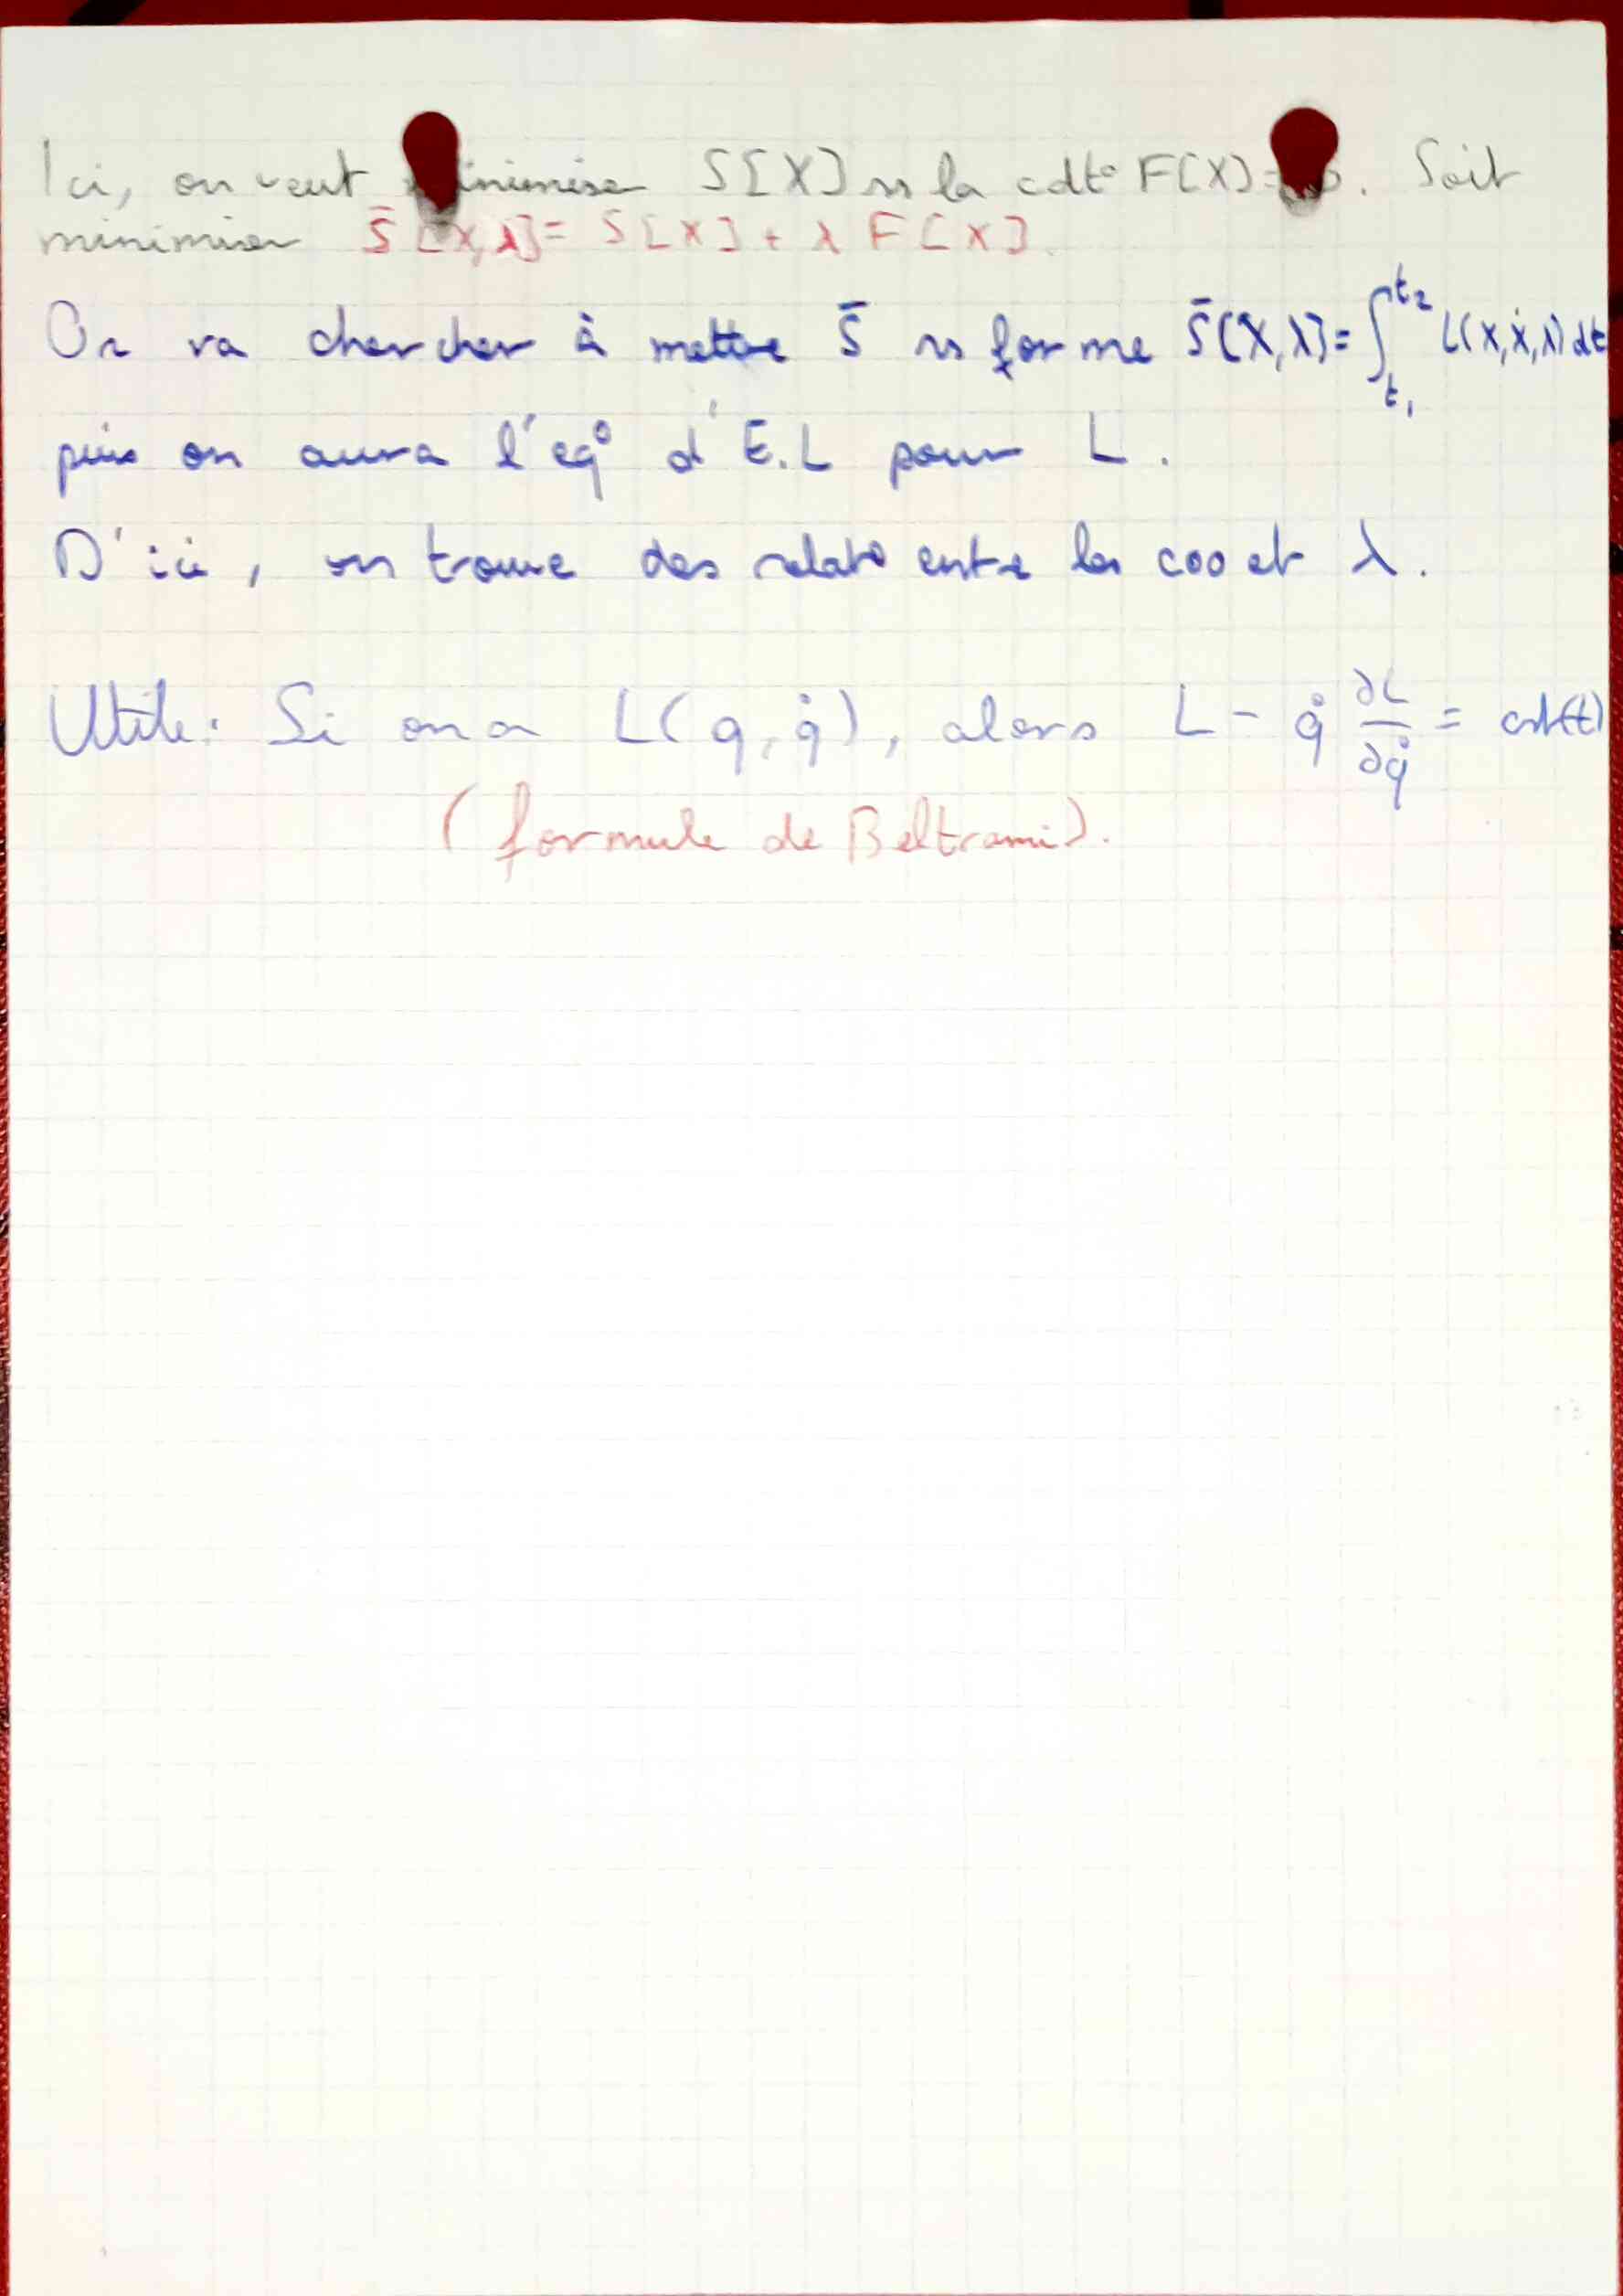 Ici, on veut minimiser S[X] ss la cdt° F[X]=0. Soit
minimiser S̄[X,λ]= S[X] + λ F[X].
On va chercher à mettre S̄ ss forme S̄[X,λ]=∫_{t₁}^{t₂} L(X,Ẋ,λ) dt
puis on aura l'eq° d'E.L pour L.
D'ici, on trouve des relat° entre les coo et λ.
Utile: Si on a L(q,q̇), alors L - q̇ ∂L/∂q̇ = cst(t)
(formule de Beltrami).